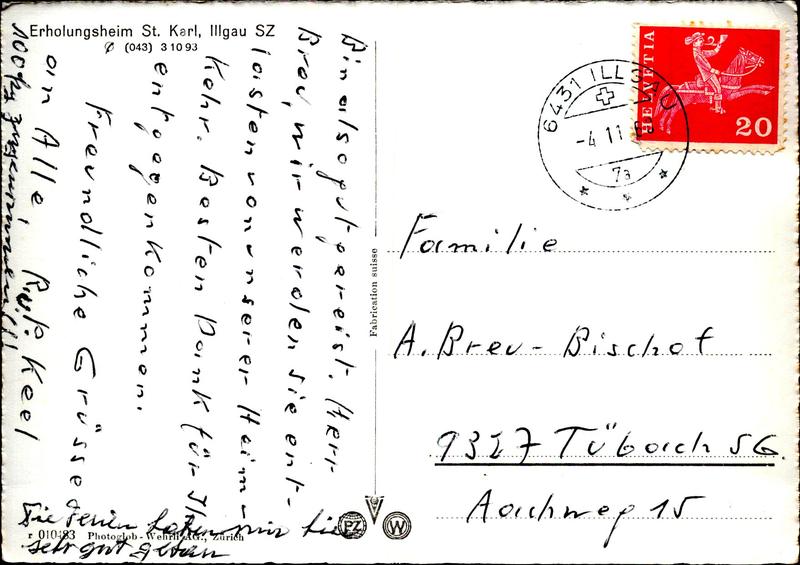 Erholungsheim St. Karl, Illgau SZ
✆ (043) 3 10 93
Bin also gut gereist. Herr
Breu, wir werden Sie ent-
lasten von unserer Heim-
kehr. Besten Dank für Ihr
entgegenkommen.
Freundliche Grüsse
an Alle,
Keel
100 kg zugenommen!!!
Die Ferien haben mir hier
sehr gut getan
r 010483 Photoglob-Wehrli A.G., Zürich
Fabrication suisse
PZ
W
HELVETIA
20
6431 ILLGAU
-4.11
7a
Familie
A. Breu-Bischof
9327 Tübach SG.
Aachweg 15